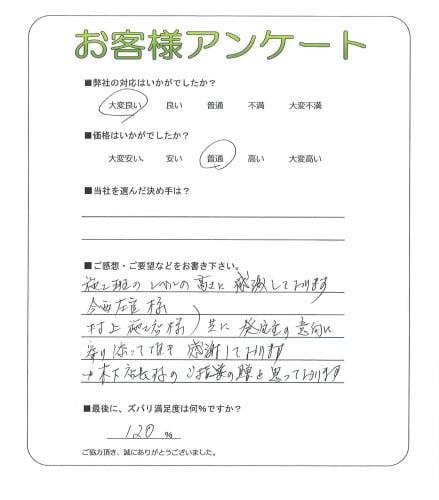 お客様アンケート
■弊社の対応はいかがでしたか?
大変良い 良い 普通 不満 大変不満
■価格はいかがでしたか?
大変安い、 安い 普通 高い 大変高い
■当社を選んだ決め手は?
■ご感想・ご要望などをお書き下さい。
施工班のレベルの高さに感激しております
今西左官様
村上施工店様 ) 共に 発注主の意向に
寄り添って頂き 感謝しております
→木下店長様のご指導の賜と思っております
■最後に、ズバリ満足度は何%ですか?
120 %
ご協力頂き、誠にありがとうございました。